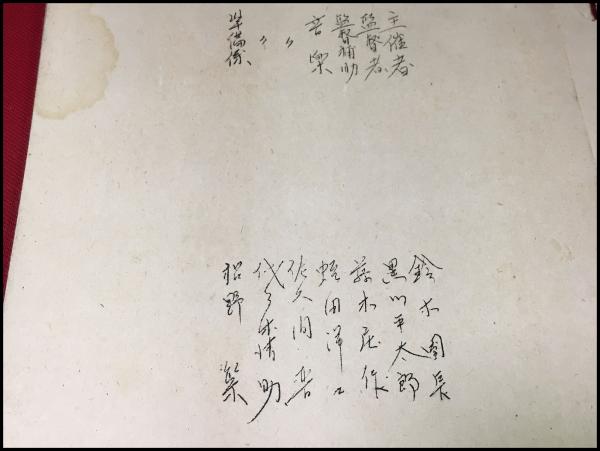 主催者
監督者
監督補助
音楽
〃
〃
準備係
鈴木園長
黒川平太郎
藤木庄作
蛭田洋
佐久間 音
代々木 助
松野 楽